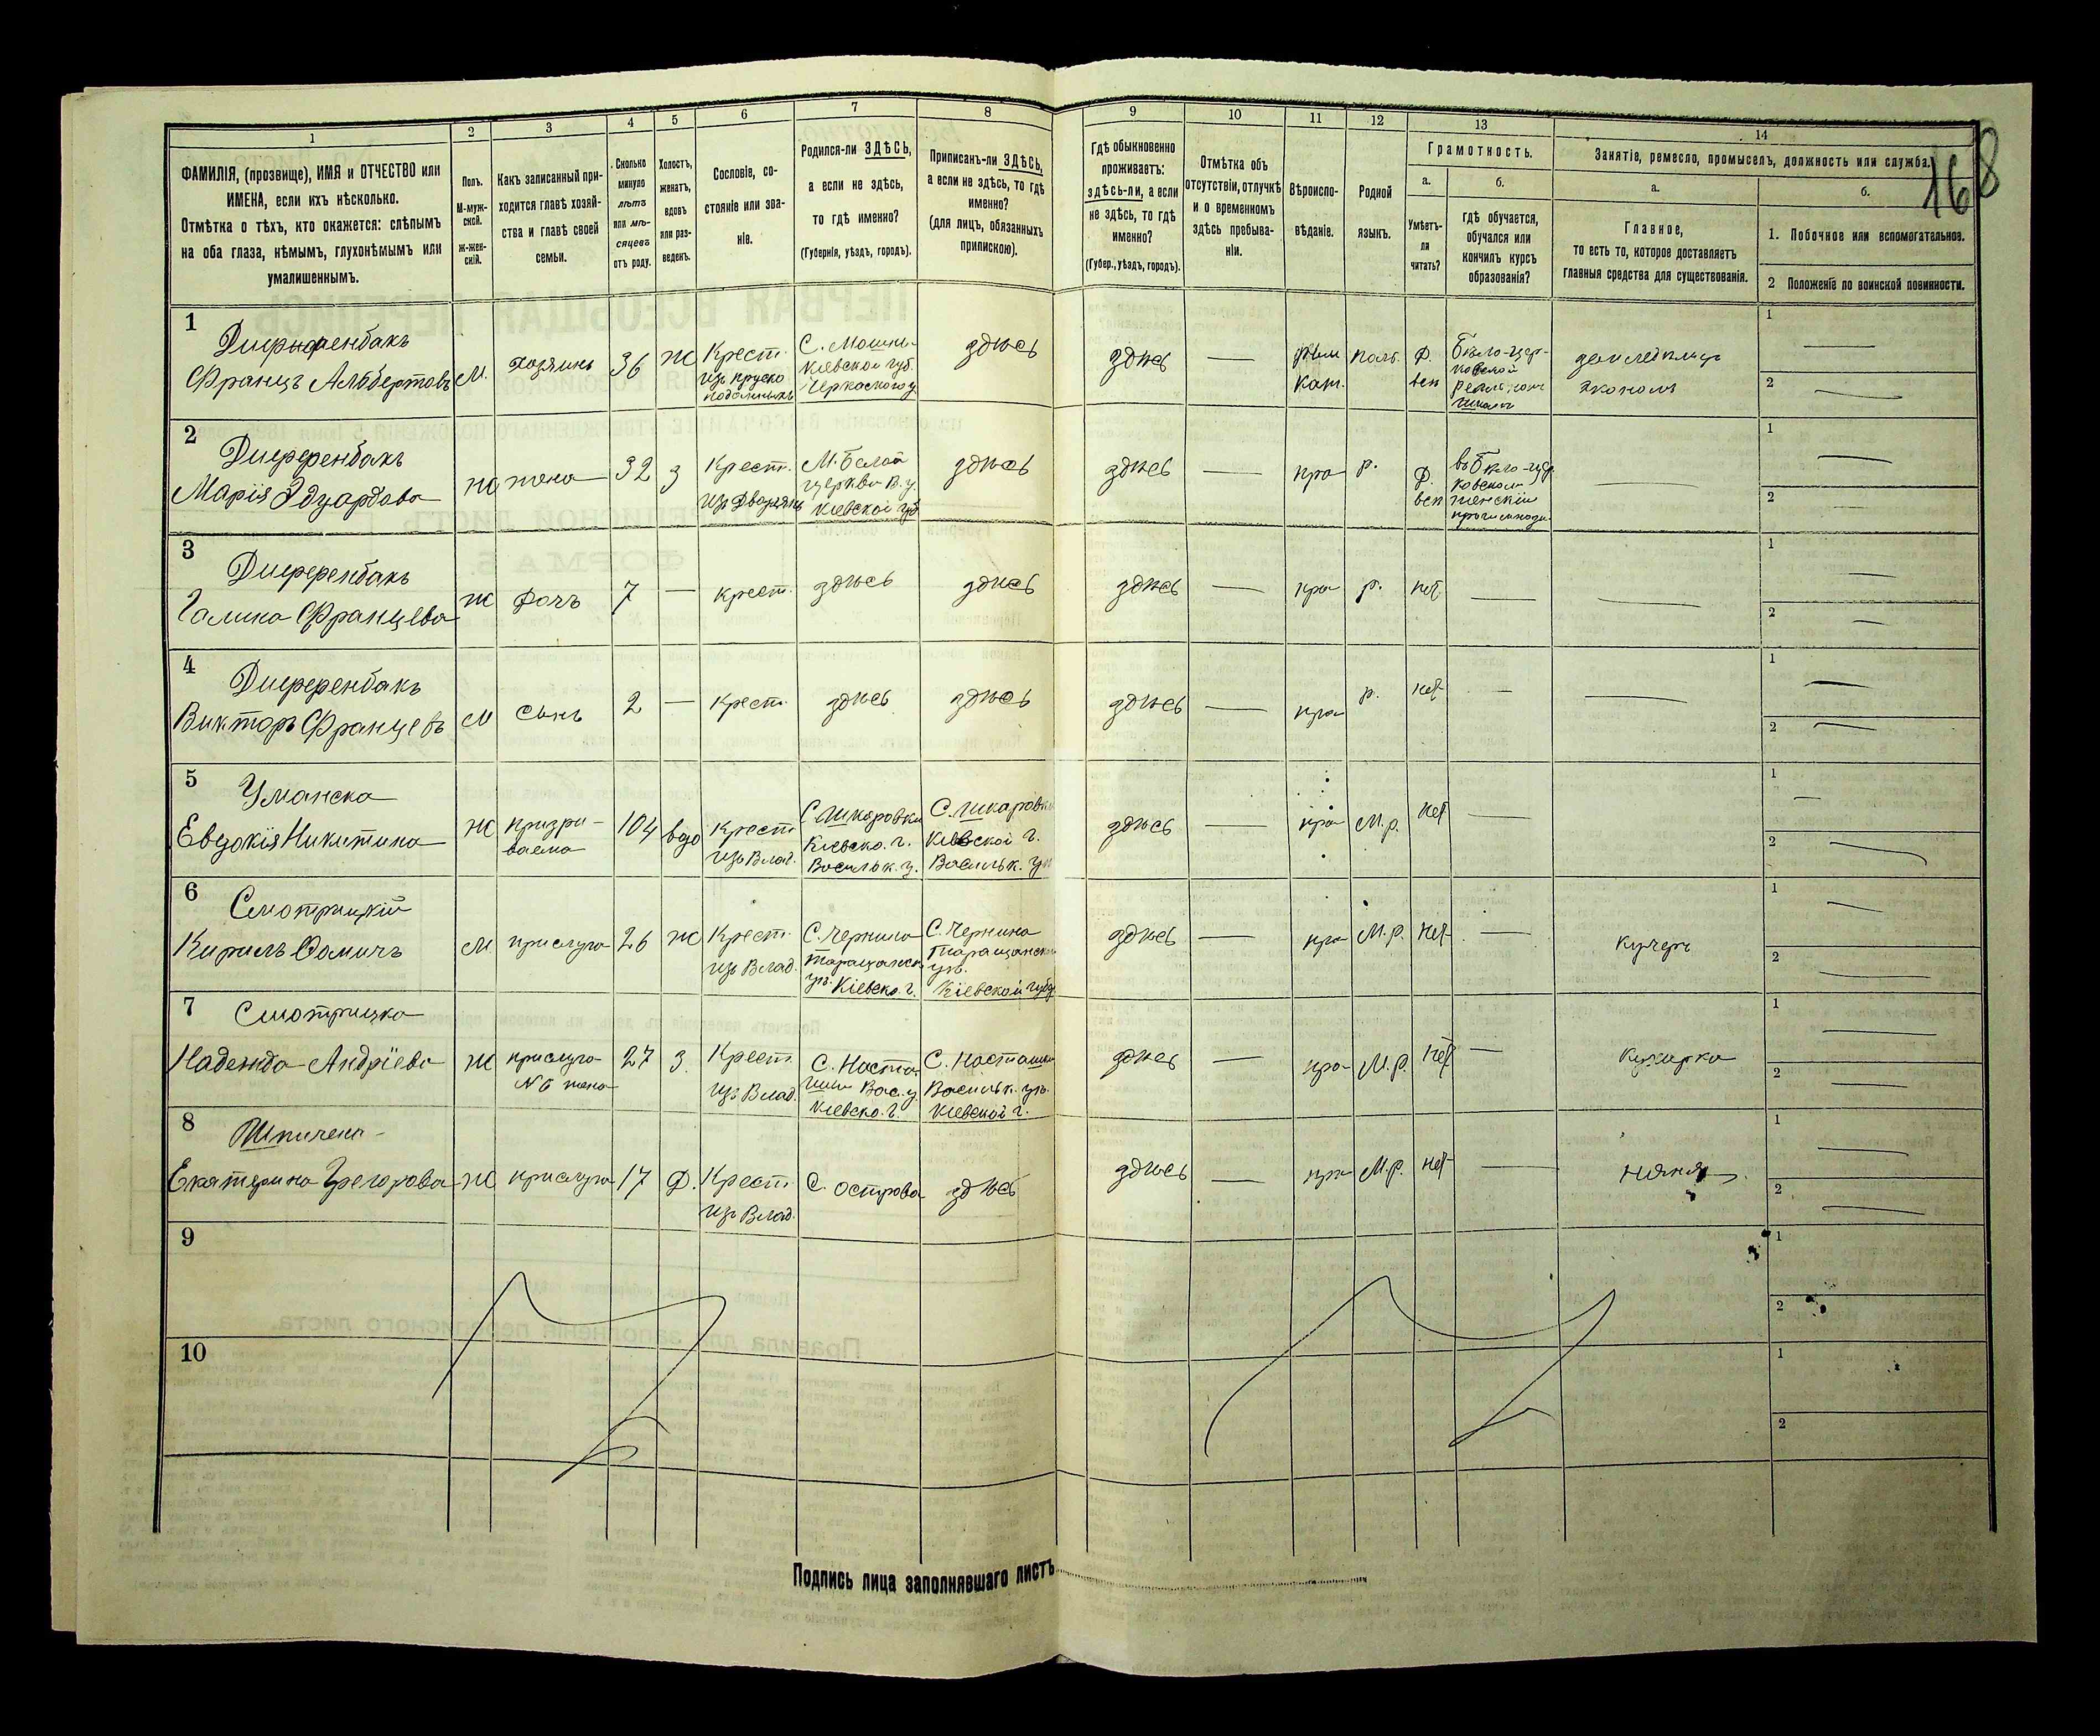 1 2 3 4 5 6 7 8 9 10 11 12 13 14
168
ФАМИЛІЯ, (прозвище), ИМЯ и ОТЧЕСТВО или
ИМЕНА, если ихъ нѣсколько.
Отмѣтка о тѣхъ, кто окажется: слѣпымъ
на оба глаза, нѣмымъ, глухонѣмымъ или
умалишеннымъ.
Полъ.
М-муж-
ской.
Ж-жен-
скій.
Какъ записанный при-
ходится главѣ хозяй-
ства и главѣ своей
семьи.
Сколько
минуло
лѣтъ
или мѣ-
сяцевъ
отъ роду.
Холостъ,
женатъ,
вдовъ
или раз-
веденъ.
Сословіе, со-
стояніе или зва-
ніе.
Родился-ли ЗДѢСЬ,
а если не здѣсь,
то гдѣ именно?
(Губернія, уѣздъ, городъ).
Приписанъ-ли ЗДѢСЬ,
а если не здѣсь, то гдѣ
именно?
(для лицъ, обязанныхъ
припискою).
Гдѣ обыкновенно
проживаетъ:
здѣсь-ли, а если
не здѣсь, то гдѣ
именно?
(Губер., уѣздъ, городъ).
Отмѣтка объ
отсутствіи, отлучкѣ
и о временномъ
здѣсь пребыва-
ніи.
Вѣроиспо-
вѣданіе.
Родной
языкъ.
Грамотность.
а.
Умѣетъ-
ли
читать?
б.
гдѣ обучается,
обучался или
кончилъ курсъ
образованія?
Занятіе, ремесло, промыселъ, должность или служба.
а.
Главное,
то есть то, которое доставляетъ
главныя средства для существованія.
б.
1. Побочное или вспомогательное.
2 Положеніе по воинской повинности.
1
Диференбакъ
Францъ Альбертовъ
М.
хозяинъ
36
Ж
Крест.
из пруско
подданныхъ
С. Мошны
Кіевской губ.
Черкаского у.
здѣсь
здѣсь
—
Рим
Кат.
поль.
Бѣло-цер-
ковской
экономъ
1 —
2 —
2
Диференбакъ
Марія Эдуардова
Ж
жена
32
з
Крест.
изъ Дворянъ
М. Белой
церкви В. у.
Кіевской губ
здѣсь
здѣсь
—
пра
р.
въ Бѣло-цер
ковском
женскій
—
1 —
2 —
3
Диференбакъ
Галина Францева
Ж
дочь
7
—
крест.
здѣсь
здѣсь
здѣсь
—
пра
р.
нет
—
—
1 —
2 —
4
Диференбакъ
Викторъ Францевъ
М
сынъ
2
—
крест.
здѣсь
здѣсь
здѣсь
—
пра
р.
нет
—
—
1 —
2 —
5
Уманска
Евдокія Никитина
Ж
призри-
ваема
104
вдо
Крест
изъ Влад.
С. Шкаровки
Кіевско. г.
Васильк. у.
С. Шкаровки
Кіевской г.
Васильк. уѣ
здѣсь
—
пра
М.р.
нет
—
1 —
2 —
6
Смотрицкій
Кирилъ Фомичъ
М.
прислуга
26
Ж
Крест.
изъ Влад.
С. Чернина
Таращанск
уѣ. Кіевско. г.
С. Чернина
Таращанск
уѣ.
Кіевской губ
здѣсь
—
пра
М.р.
нет
—
кучеръ
1 —
2 —
7
Смотрицка
Надежда Андріева
Ж
прислуга
№ 6 жена
27
з.
Крест.
изъ Влад.
С. Наста
шки Вас. у
Кіевско. г.
С. Насташки
Васильк. уѣ.
Кіевской г.
здѣсь
—
пра
М.р.
нет
—
кухарка
1 —
2 —
8
Екатерина Грегорова
Ж
прислуга
17
Д.
Крест.
изъ Влад.
С. Острова
здѣсь
здѣсь
—
пра
М.р.
нет
—
няня
1 —
2 —
9
1
2
10
1
2
Подпись лица заполнявшаго листъ